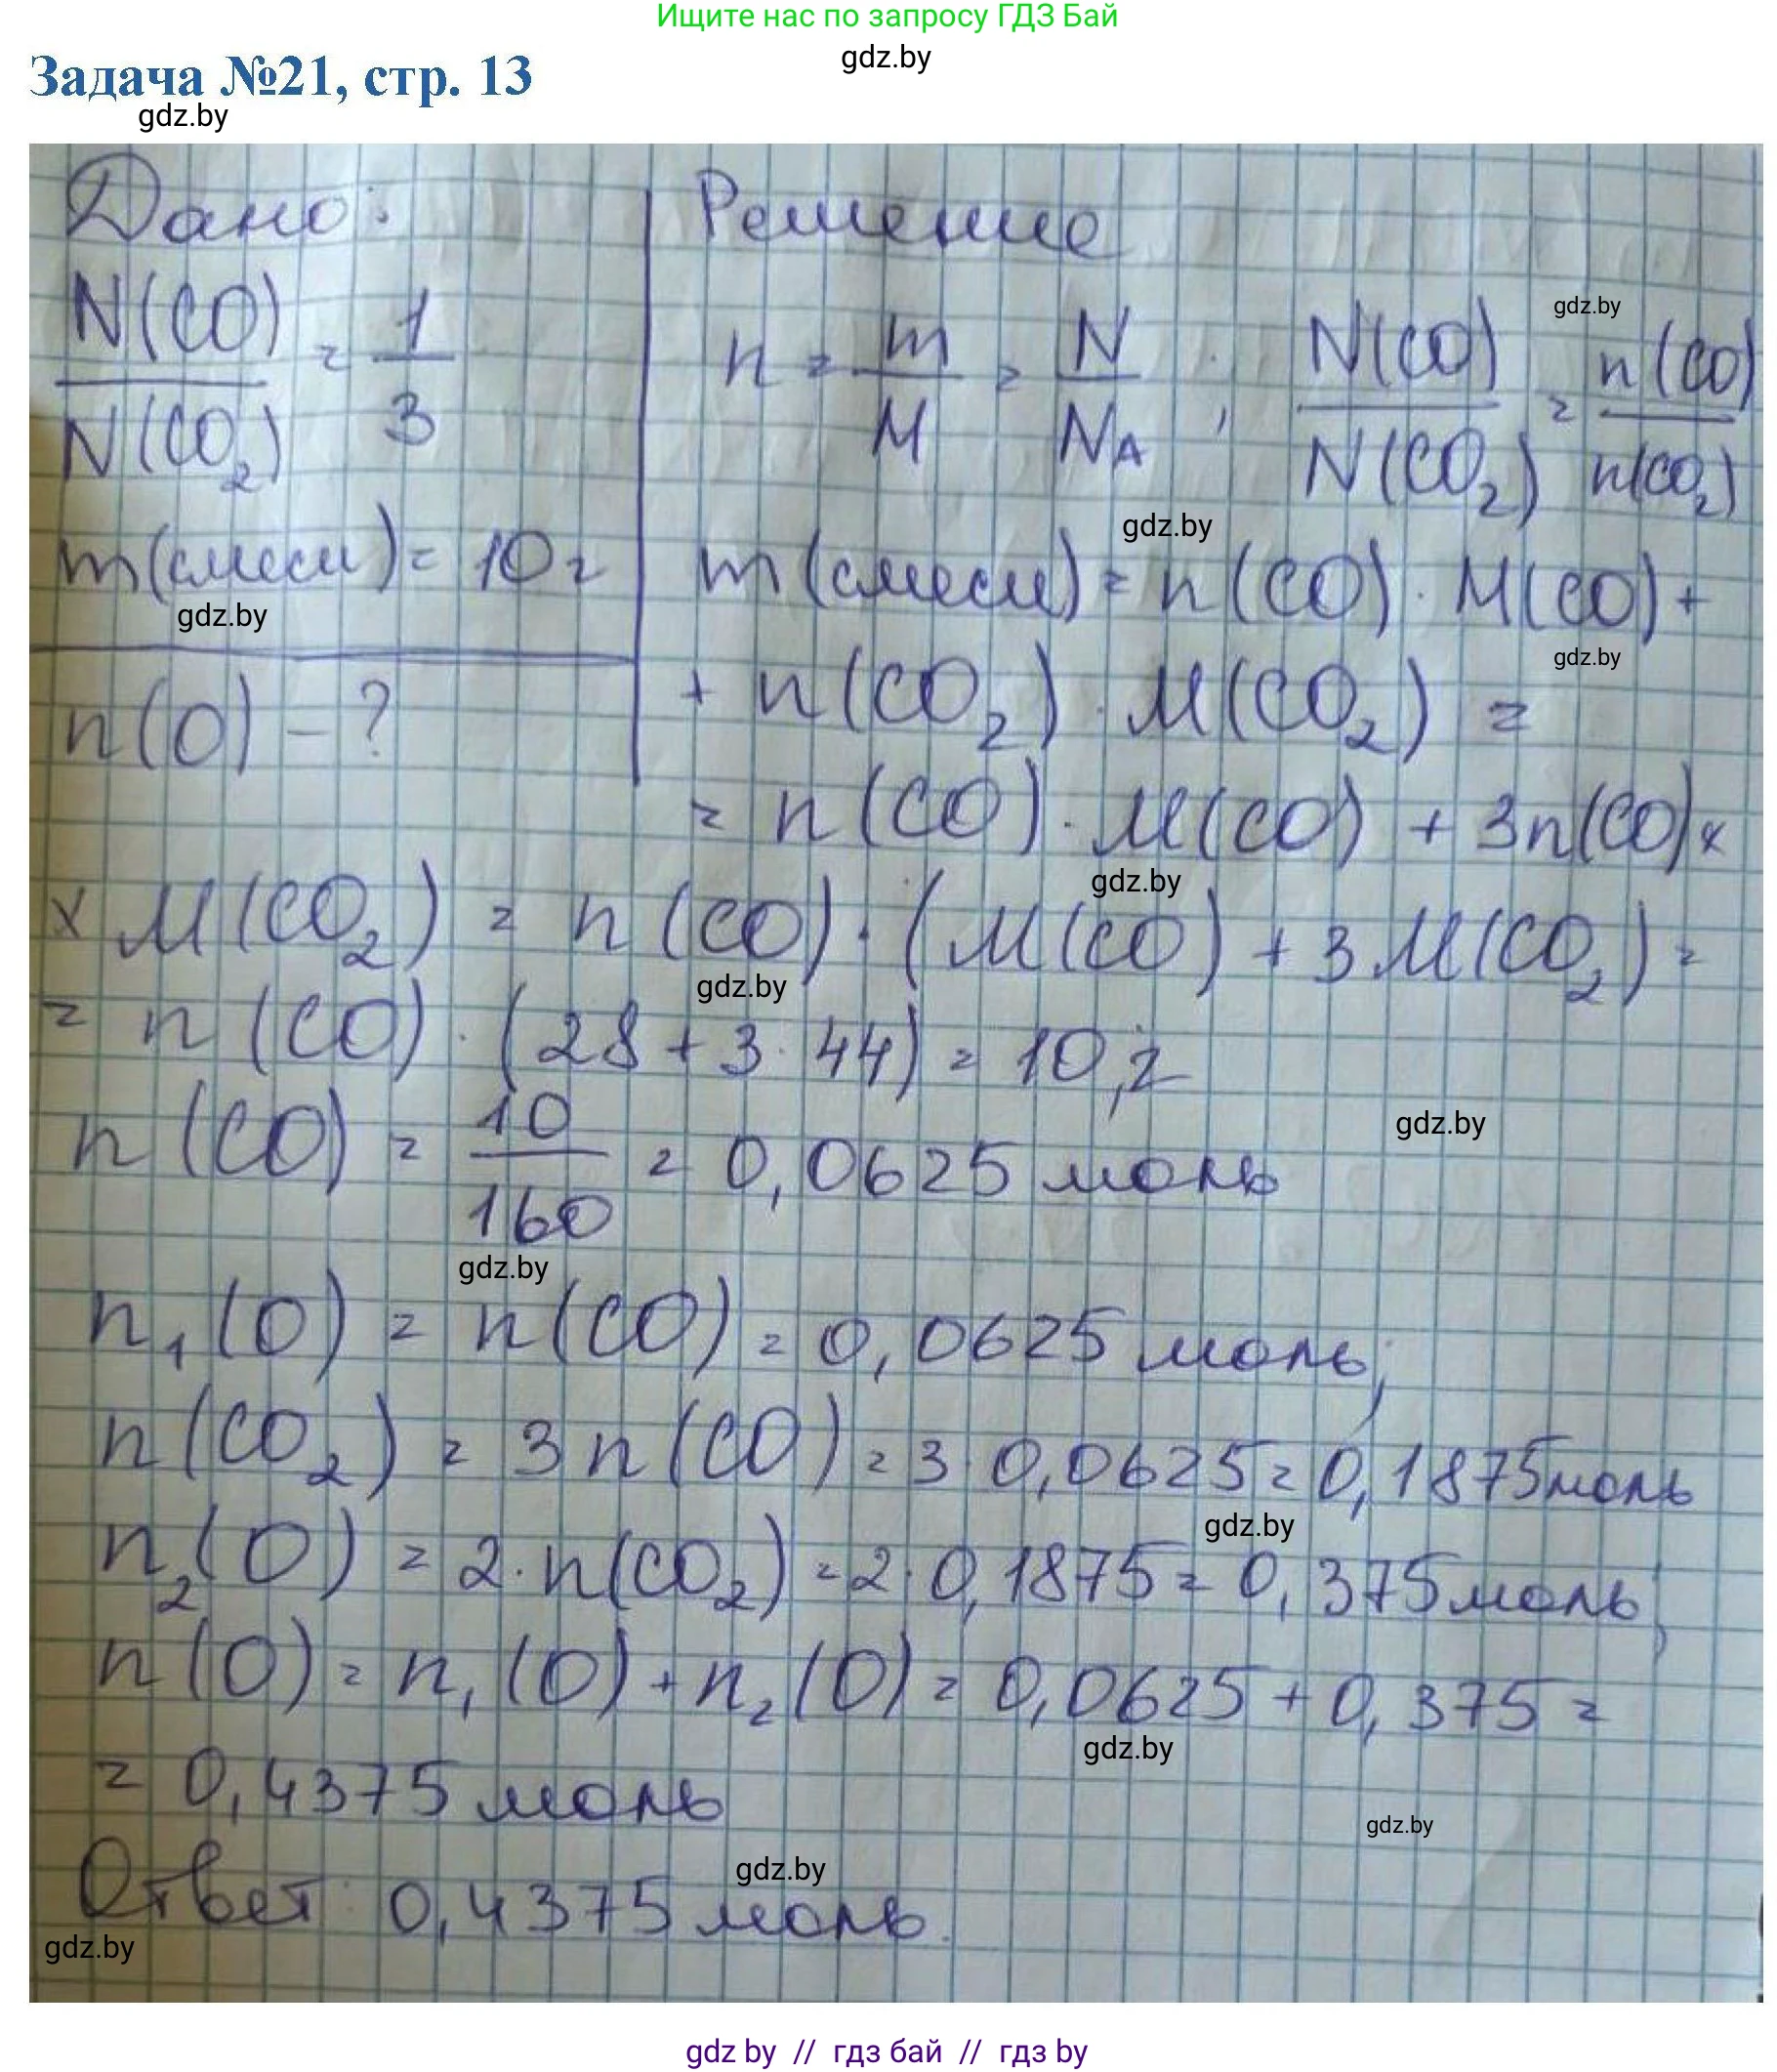 Ищите нас по запросу ГДЗ Бай
gdz.by
Задача №21, стр. 13
gdz.by
Дано:
N(CO)/N(CO₂) = 1/3
m(смеси) = 10 г
gdz.by
n(O) - ?
Решение
n = m/M = N/Nₐ; N(CO)/N(CO₂) = n(CO)/n(CO₂)
gdz.by
gdz.by
m(смеси) = n(CO) · M(CO) +
gdz.by
+ n(CO₂) · M(CO₂) =
= n(CO) · M(CO) + 3n(CO) ×
gdz.by
× M(CO₂) = n(CO) · (M(CO) + 3M(CO₂) =
gdz.by
= n(CO) · (28 + 3 · 44) = 10, г
gdz.by
n(CO) = 10/160 = 0,0625 моль
gdz.by
n₁(O) = n(CO) = 0,0625 моль;
n(CO₂) = 3n(CO) = 3 · 0,0625 = 0,1875 моль
gdz.by
n₂(O) = 2 · n(CO₂) = 2 · 0,1875 = 0,375 моль;
n(O) = n₁(O) + n₂(O) = 0,0625 + 0,375 =
gdz.by
= 0,4375 моль
gdz.by
gdz.by
Ответ: 0,4375 моль.
gdz.by
gdz by // гдз бай // гдз by